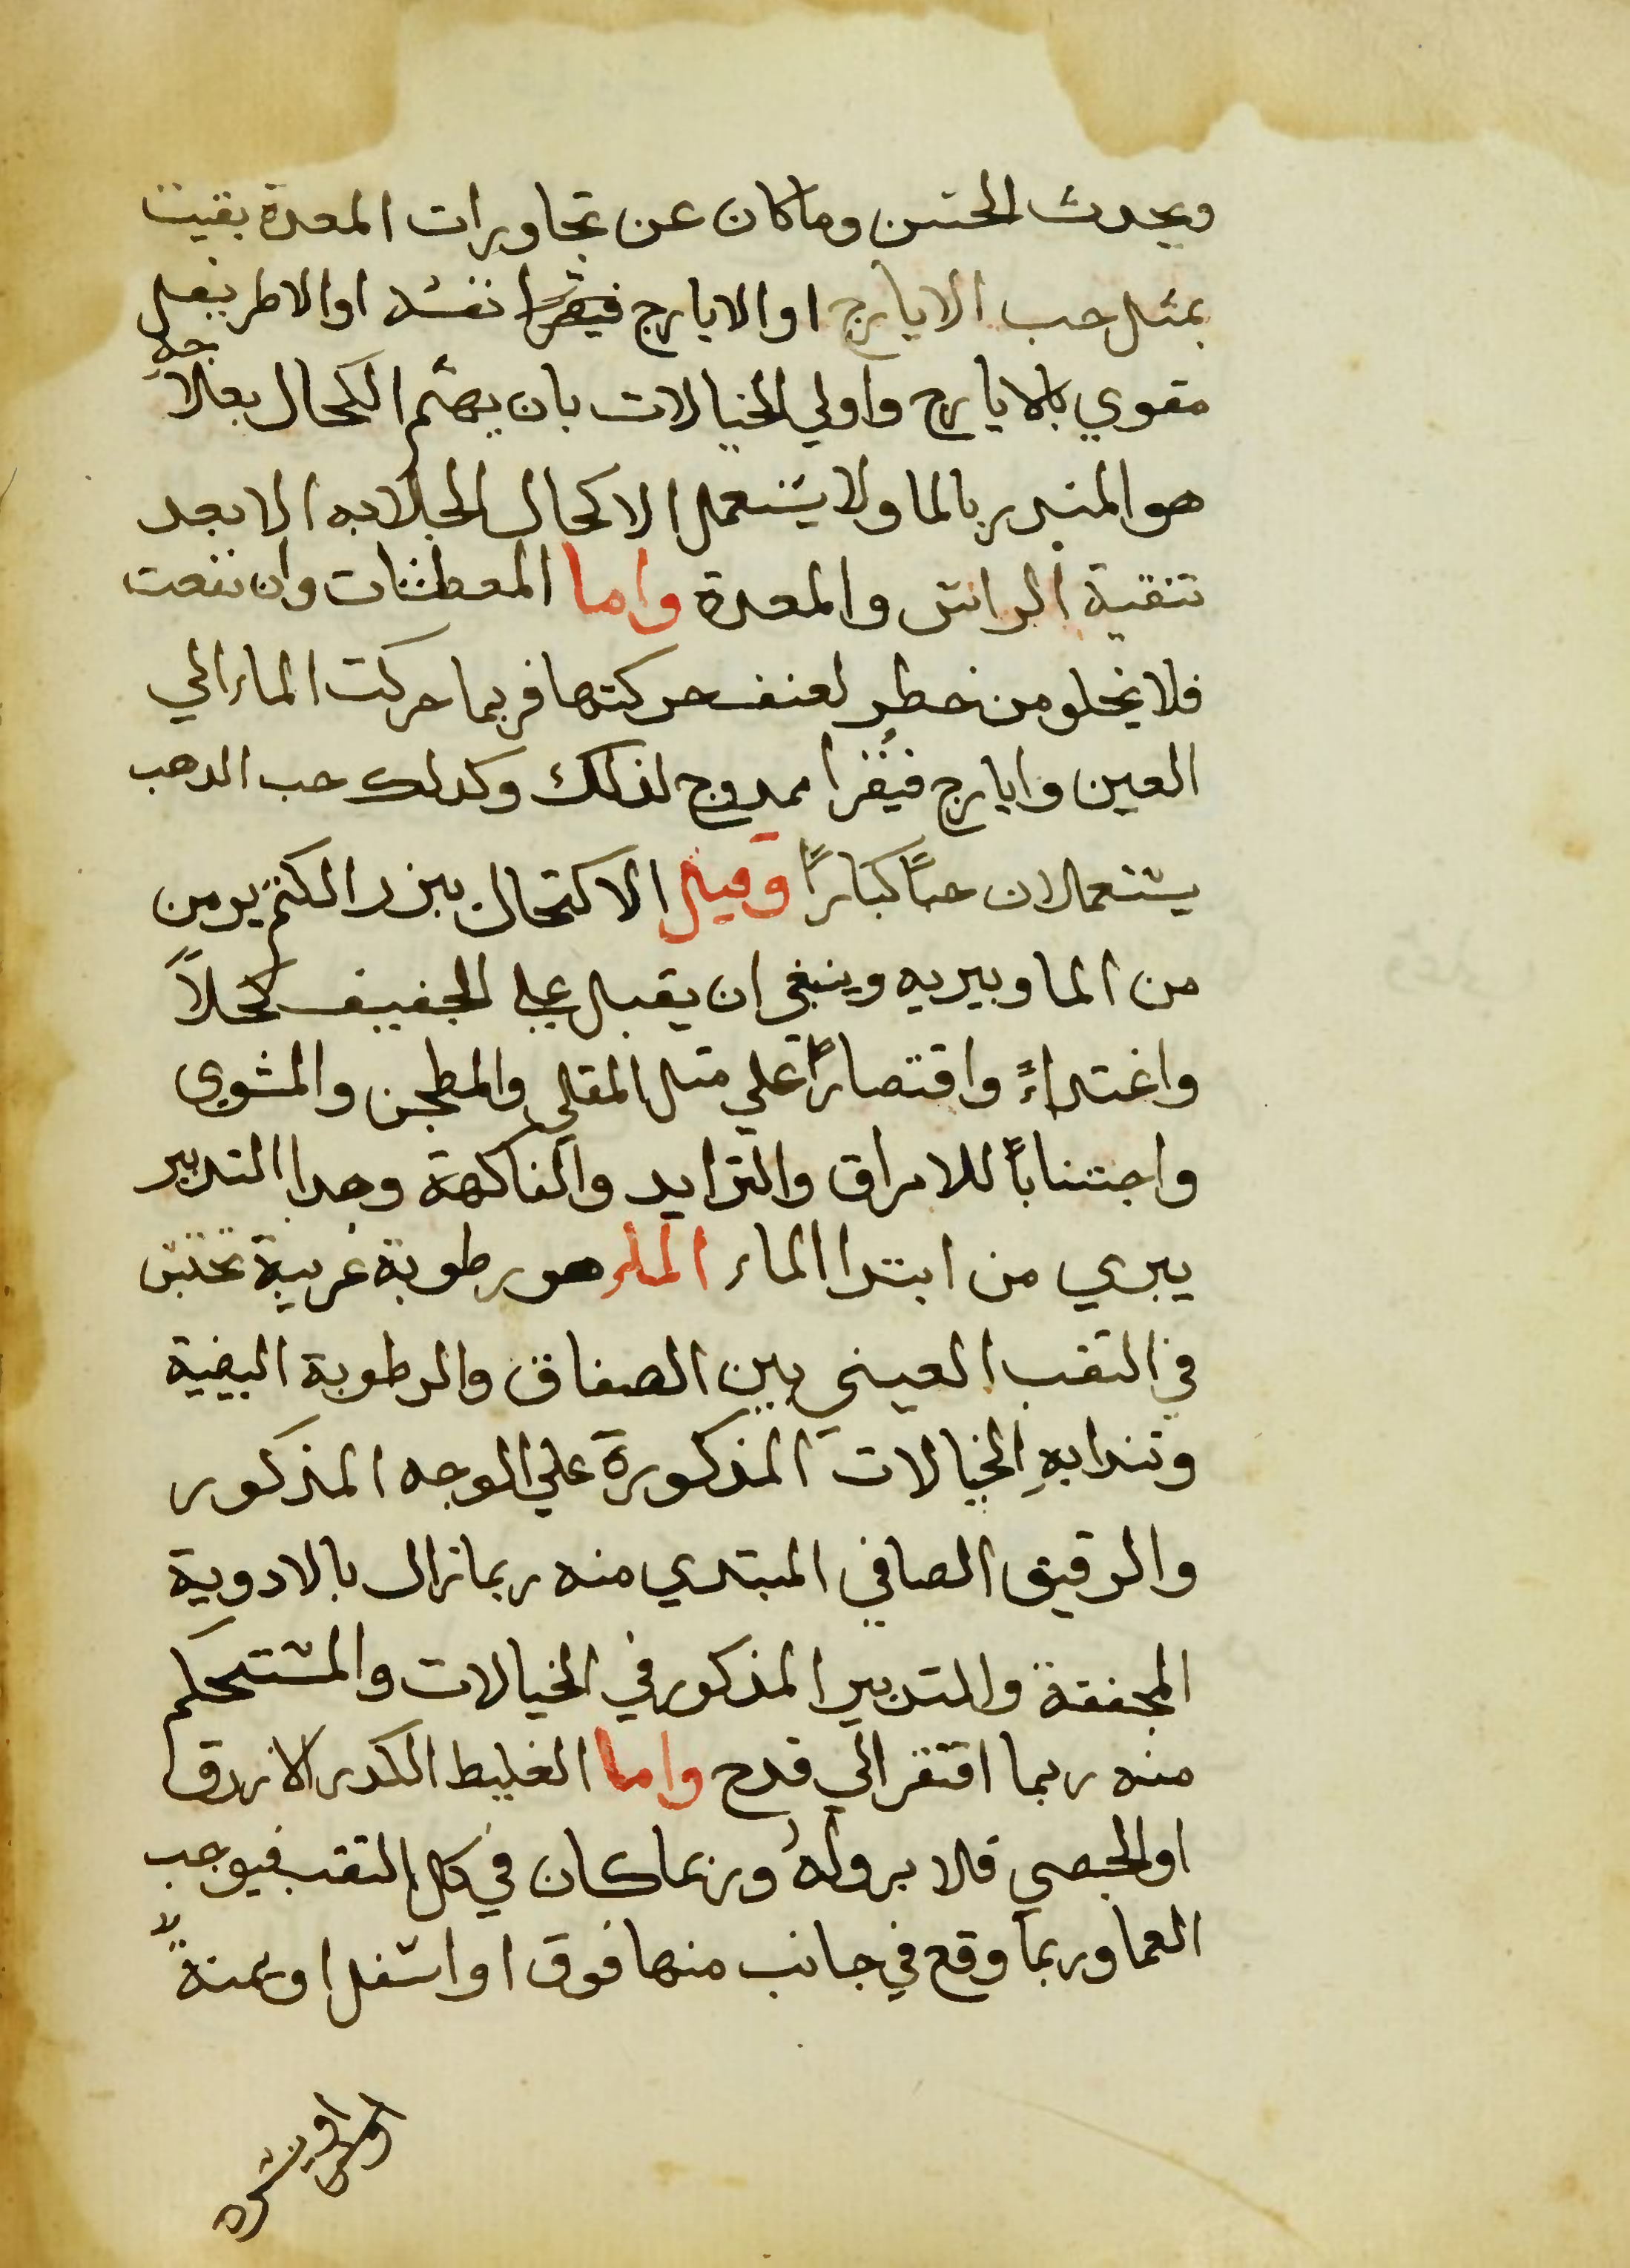 ويحدث الحسن وما كان عن تجاويرات المعدة بقيت
بمثل حب الايارج او الايارج فيقرا نفسه او الاطريفل
مقوي بالايارج واولي الخيالات بان يهتم الكحال بعلاجه
هو المنذر بالما ولا يستعمل الاكحال الجلابه الا بعد
تنقية الراس والمعدة واما المعطشات وان نفعت
فلا يخلو من خطر لعنف حركتها فربما حركت الماء الي
العين وايارج فيقرا ممدوح لذلك وكدلك حب الدهب
يستعملان حبًا كبارًا وقيل الاكتحال ببزر الكتم يومن
من الما ويبريه وينبغي ان يقبل علي الجفيف كحلاً
واغتداءً واقتصارًا علي متل المقلي والمطجن والمشوي
واجتنابًا للامراق والترايد والفاكهة وهدا التدبير
يبري من ابتدا الماء الماء هو رطوبة غريبة تحتبس
في التقب العيني بين الصفاق والرطوبة البيضية
وتندابهِ الخيالات المذكورة علي الوجه المذكور
والرقيق الصافي المبتدي منه ربما زال بالادوية
المجففة والتدبير المذكور في الخيالات والمستحكم
منه ربما افتقر الي قدح واما الغليط الكدر الازرق
او الجصي فلا برو لهُ وربما كان في كل التقب فيوجب
العما وربما وقع في جانب منها فوق او اسفل او يمنةً